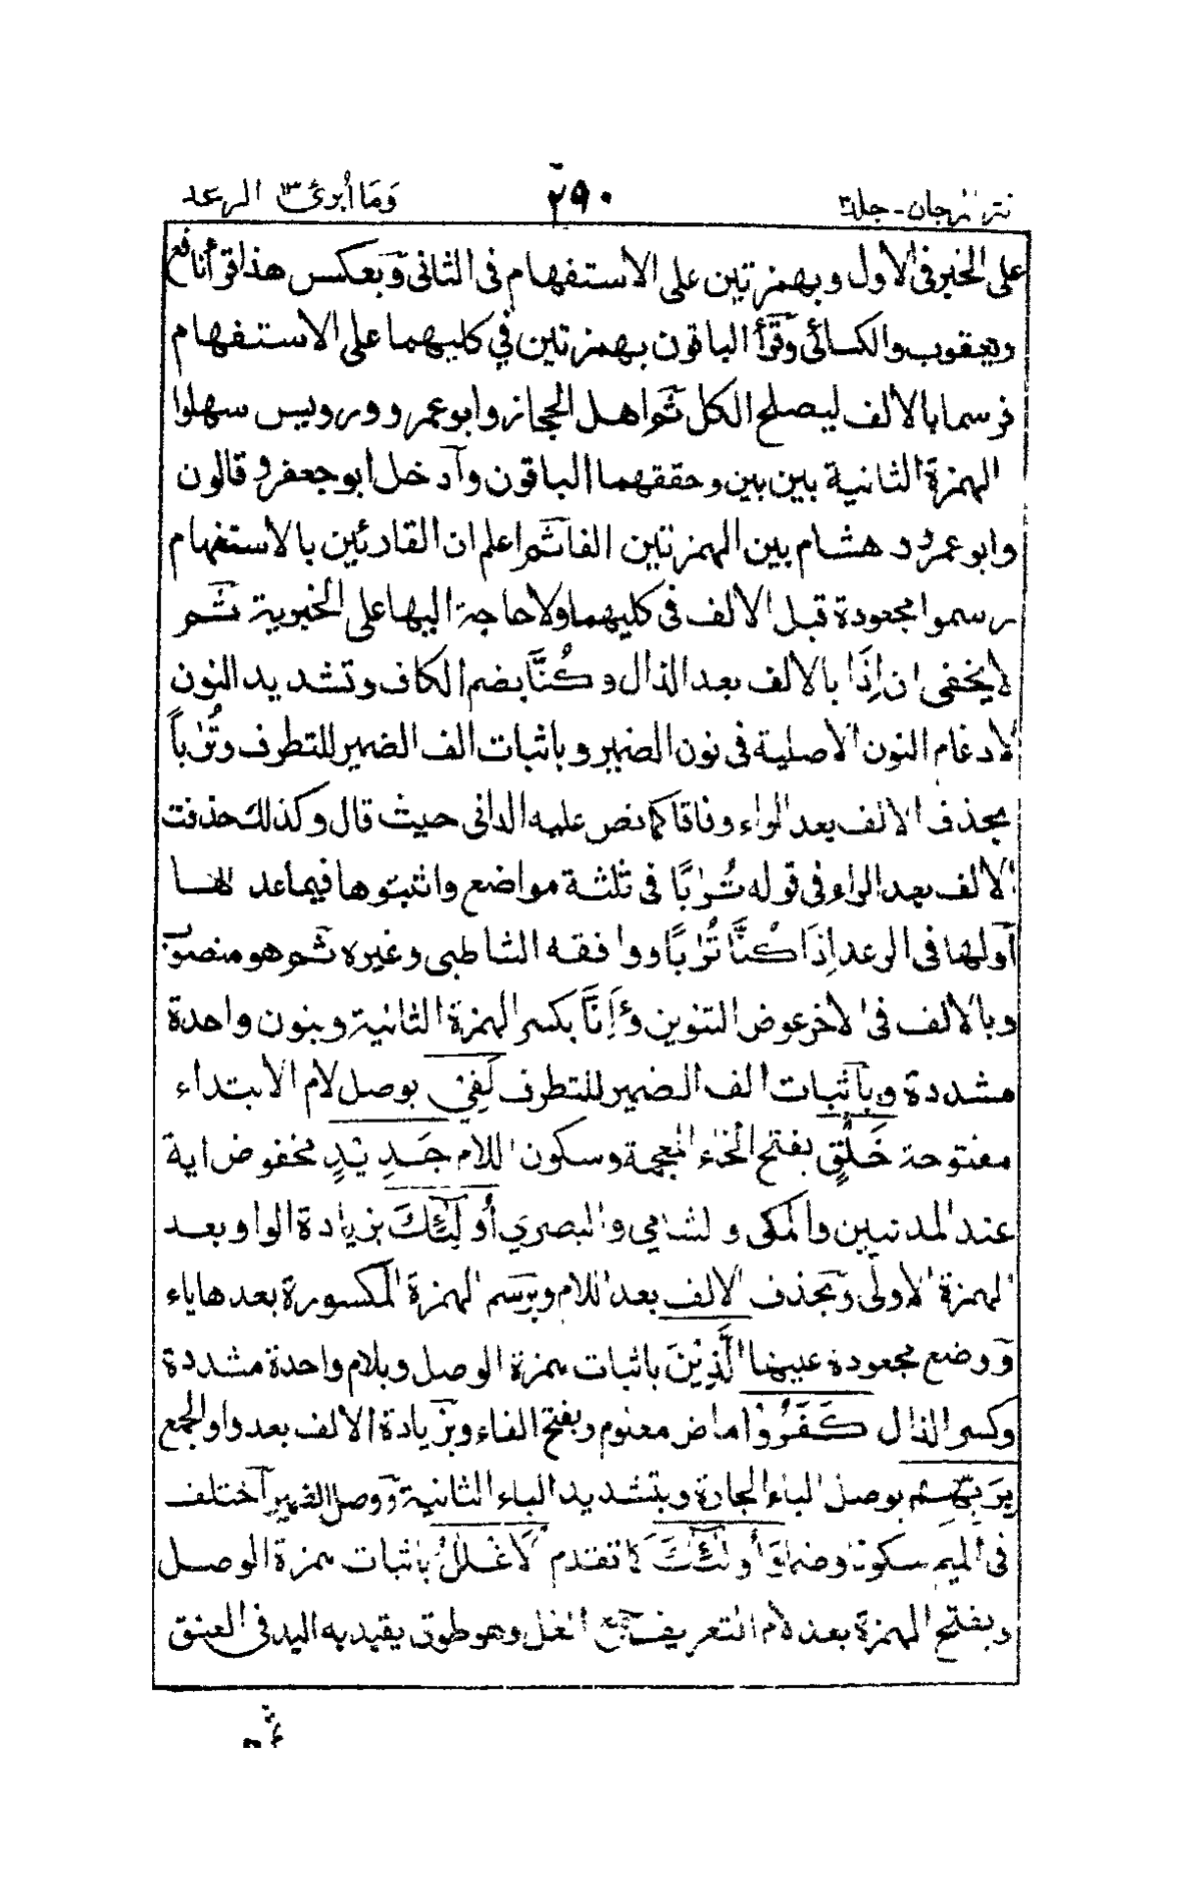 نثر المرجان - جلد٣ ٢٩٠ وَمَا أُبرئ ١٣ الرعد
على الخبر فى الاول وبهمزتين على الاستفهام فى الثانى وبعكس هذا قرأ نافع
ويعقوب والكسائى وقرأ الباقون بهمزتين في كليهما على الاستفهام
فرسما بالالف ليصلح الكل ثم اهل الحجاز وابو عمرو ورويس سهلوا
الهمزة الثانية بين بين وحققهما الباقون وادخل ابو جعفر وقالون
وابو عمرو و هشام بين الهمزتين الفا ثم اعلم ان القارئين بالاستفهام
رسموا مجعودة قبل الالف فى كليهما ولا حاجة اليها على الخبرية ثم
لا يخفى ان اِذَا بالالف بعد الذال وكُنَّا بضم الكاف وتشديد النون
لادغام النون الاصلية فى نون الضمير وباثبات الف الضمير للتطرف وتُرٰباً
بحذف الالف بعد الراء وفاقا كما نص عليه الدانى حيث قال وكذلك حذفت
الالف بعد الراء فى قوله تُرٰبًا فى ثلثة مواضع واثبتوها فيما عداها
اولها فى الرعد اِذَا كُنَّا تُرٰبًا ووافقه الشاطبى وغيره ثم هو منصوب
وبالالف فى الاخر عوض التنوين وءَاِنَّا بكسر الهمزة الثانية وبنون واحدة
مشددة وباثبات الف الضمير للتطرف لَفِىْ بوصل لام الابتداء
مفتوحة خَلْقٍ بفتح الخاء المعجمة وسكون اللام جَدِيْدٍ مخفوض اية
عند المدنيين والمكى والشامي والبصري أُولٰئِكَ بزيادة الواو بعد
الهمزة الاولى وبحذف الالف بعد اللام وبرسم الهمزة المكسورة بعدها ياء
ووضع مجعودة عليها الَّذِيْنَ باثبات همزة الوصل وبلام واحدة مشددة
وكسر الذال كَفَرُوْا ماض معلوم وبفتح الفاء وبزيادة الالف بعد واو الجمع
بِرَبِّهِمْ بوصل الباء الجارة وبتشديد الباء الثانية ووصل الضمير اختلف
فى الميم سكونا وضما وَأُولٰئِكَ كما تقدم الاَغْلٰلُ باثبات همزة الوصل
وبفتح الهمزة بعد لام التعريف جمع الغل وهو طوق يقيد به اليد فى العنق